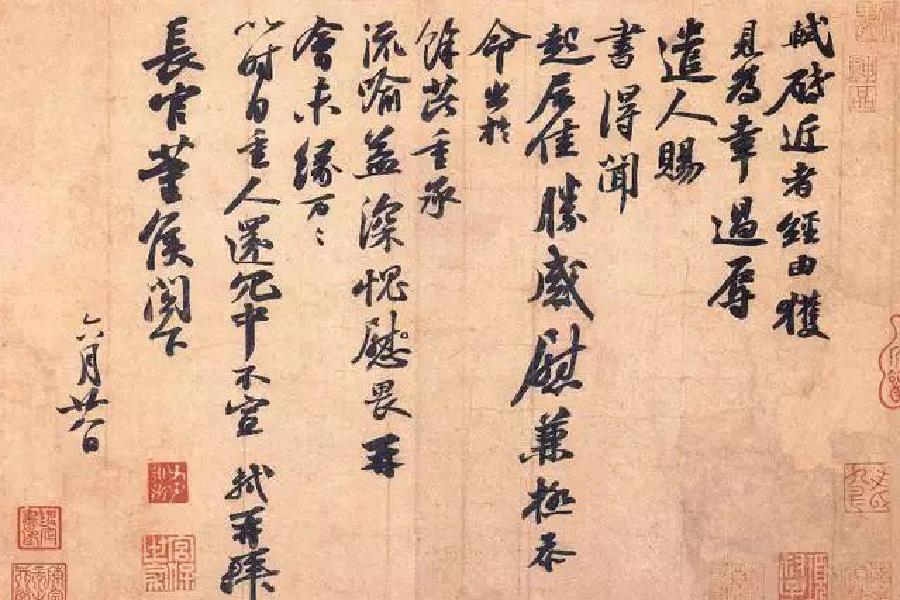 軾啓近者經由獲
見為幸過辱
遣人賜
書得聞
起居佳勝感慰兼極忝
命出於
餘芘重承
流喻益深愧慰畏再
會未緣万〻
以时自重人還冗中不宣 軾再拜
長官董侯閤下
六月廿八日